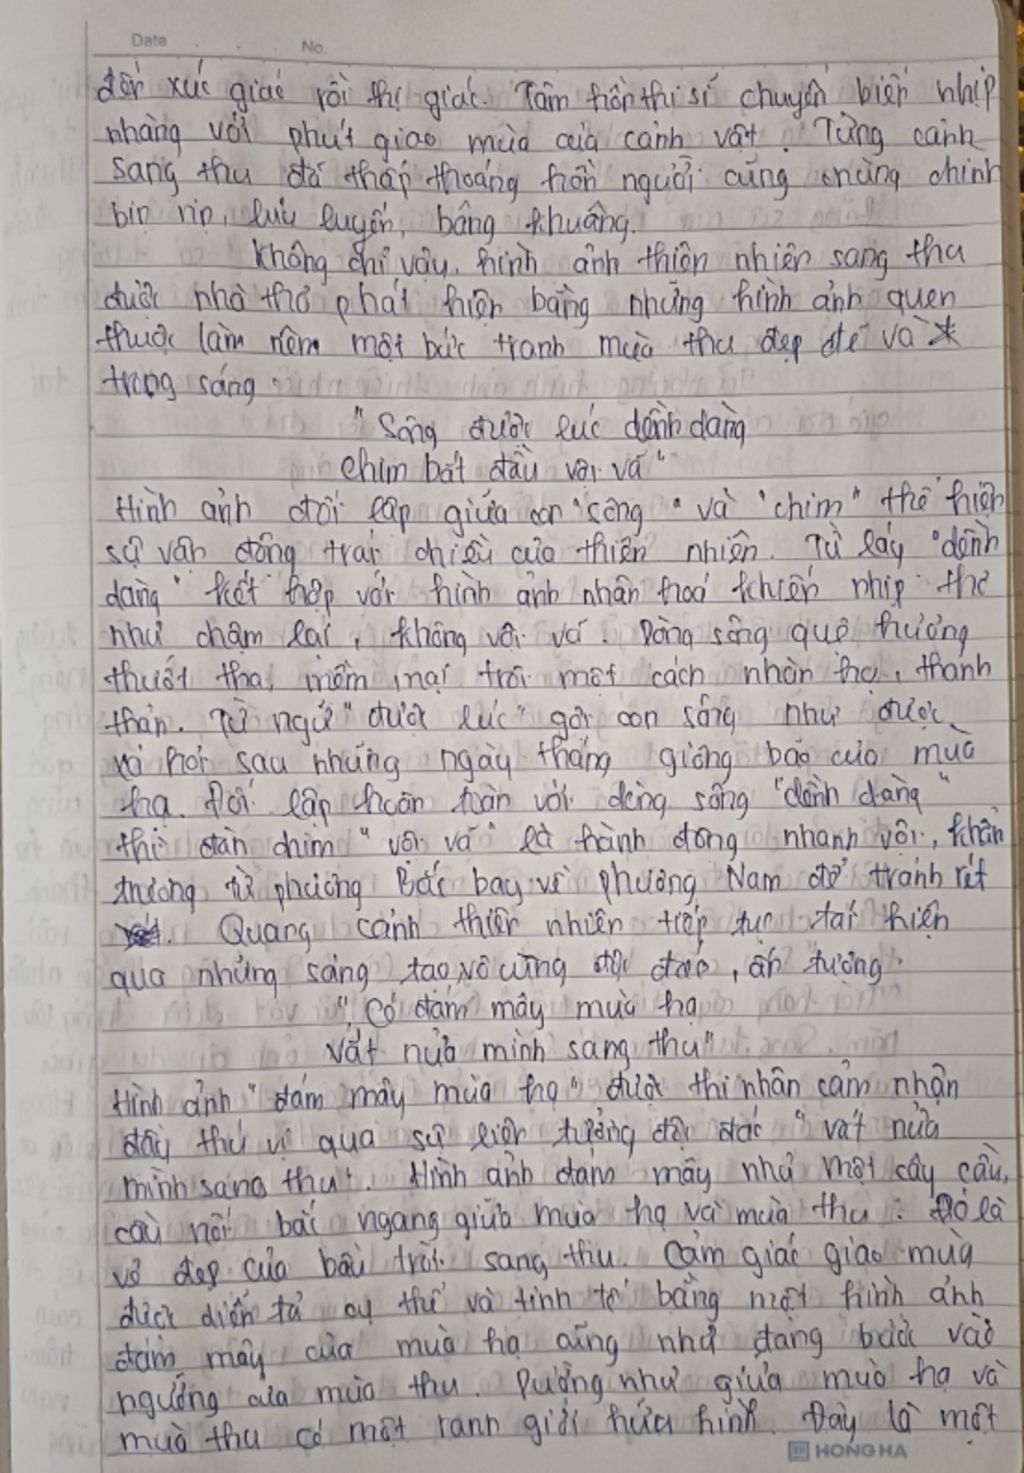 Date No.
đến xúc giác rồi thị giác. Tâm hồn thi sĩ chuyển biến nhịp
nhàng với phút giao mùa của cảnh vật. Từng cảnh
sang thu đã thấp thoáng hồn người cũng chùng chình
bịn rịn, lưu luyến, bâng khuâng.
Không chỉ vậy, hình ảnh thiên nhiên sang thu
được nhà thơ phát hiện bằng những hình ảnh quen
thuộc làm nên một bức tranh mùa thu đẹp đẽ và
trong sáng:
"Sông được lúc dềnh dàng
Chim bắt đầu vội vã"
Hình ảnh đối lập giữa con "sông" và "chim" thể hiện
sự vận động trái chiều của thiên nhiên. Từ láy "dềnh
dàng" kết hợp với hình ảnh nhân hoá khiến nhịp thơ
như chậm lại, không vội vã. Dòng sông quê hương
thướt tha, mềm mại trôi một cách nhàn hạ, thanh
thản. Từ ngữ "được lúc" gợi con sông như được
xả hơi sau những ngày tháng giông bão của mùa
hạ. Đối lập hoàn toàn với dòng sông "dềnh dàng"
thì đàn chim "vội vã" là hành động nhanh vội, khẩn
trương từ phương Bắc bay về phương Nam để tránh rét
. Quang cảnh thiên nhiên tiếp tục tái hiện
qua những sáng tạo vô cùng độc đáo, ấn tượng
"Có đám mây mùa hạ
Vắt nửa mình sang thu"
Hình ảnh "đám mây mùa hạ" được thi nhân cảm nhận
đầy thú vị qua sự liên tưởng độc đáo "vắt nửa
mình sang thu". Hình ảnh đám mây như một cây cầu,
cầu nối bắc ngang giữa mùa hạ và mùa thu. Đó là
vẻ đẹp của bầu trời sang thu. Cảm giác giao mùa
được diễn tả cụ thể và tinh tế bằng một hình ảnh
đám mây của mùa hạ cũng như đang bước vào
ngưỡng của mùa thu. Dường như giữa mùa hạ và
mùa thu có một ranh giới hữu hình. Đây là một
HONG HA